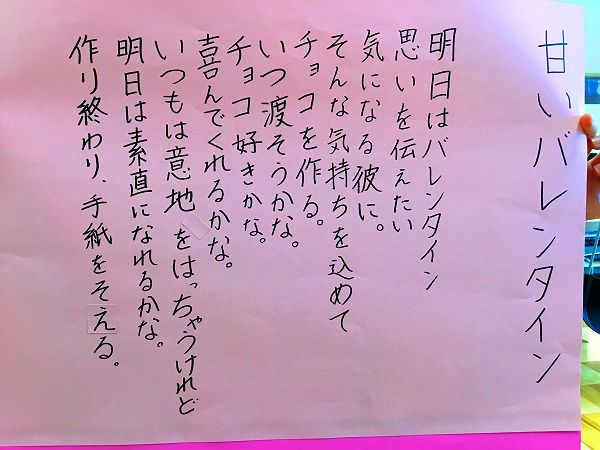 甘いバレンタイン
明日はバレンタイン
思いを伝えたい
気になる彼に。
そんな気持ちを込めて
チョコを作る。
いつ渡そうかな。
チョコ好きかな。
喜んでくれるかな。
いつもは意地をはっちゃうけれど
明日は素直になれるかな。
作り終わり、手紙をそえる。